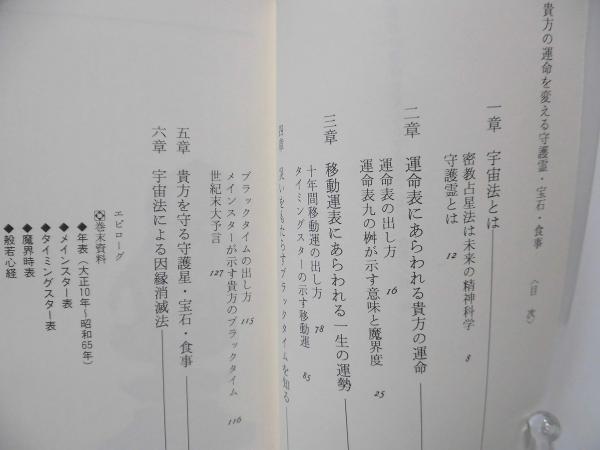 貴方の運命を変える守護霊・宝石・食事 〈目次〉
一章 宇宙法とは
密教占星法は未来の精神科学 8
守護霊とは 12
二章 運命表にあらわれる貴方の運命
運命表の出し方 16
運命表九の桝が示す意味と魔界度 25
三章 移動運表にあらわれる一生の運勢
十年間移動運の出し方 78
タイミングスターの示す移動運 85
四章 災いをもたらすブラックタイムを知る
ブラックタイムの出し方 115
メインスターが示す貴方のブラックタイム 116
世紀末大予言 127
五章 貴方を守る守護星・宝石・食事
六章 宇宙法による因縁消滅法
エピローグ
巻末資料
◆年表（大正10年〜昭和65年）
◆メインスター表
◆タイミングスター表
◆魔界時表
◆般若心経